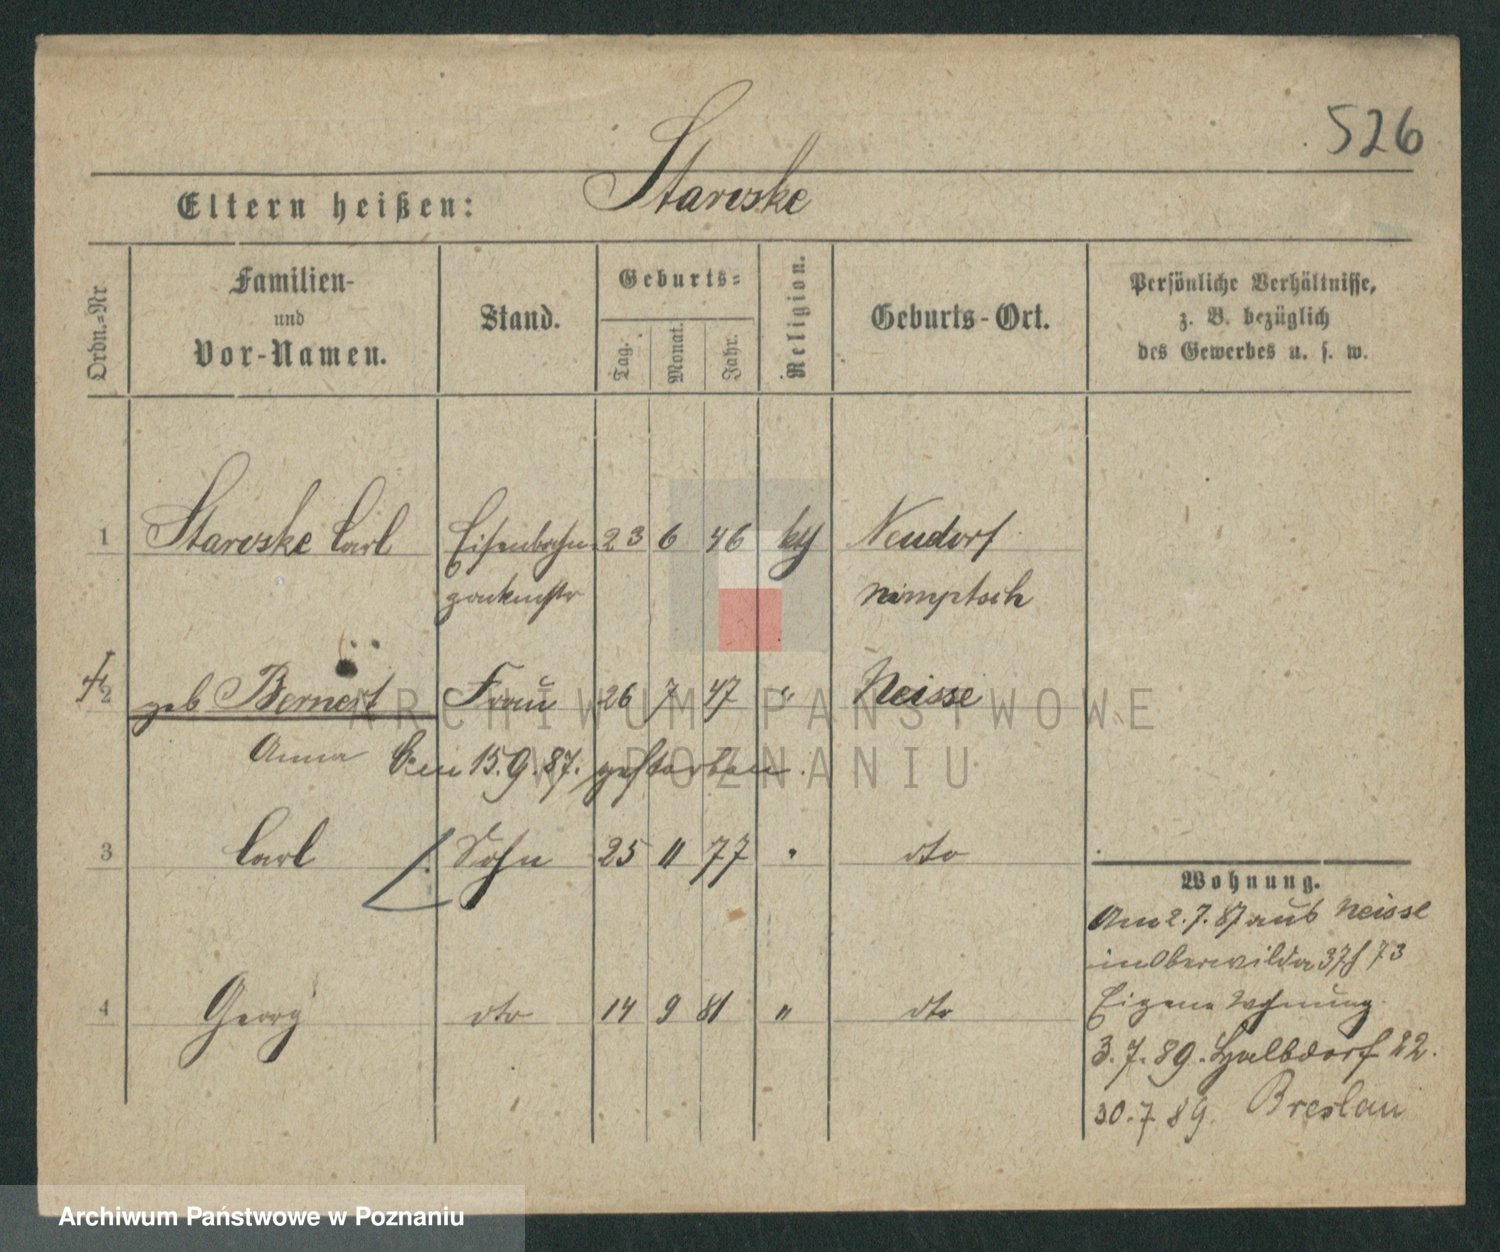 526
Eltern heißen: Staroske
Ordn.-Nr
Familien-
und
Vor-Namen.
Stand.
Geburts-
Tag.
Monat.
Jahr.
Religion.
Geburts-Ort.
Persönliche Verhältnisse,
z. B. bezüglich
des Gewerbes u. s. w.
1 Staroske Carl Eisenbahn- 23 6 46 Neudorf
Nimptsch
2 geb Bernert Frau 26 7 47 " Neisse
Anna Den 15.9.87. gestorben.
3 Carl Sohn 25 11 77 " dto
4 Georg dto 14 9 81 " dto
Wohnung.
Am 2.7.87 aus Neisse
in Oberwilda 37/73
Eigene Wohnung.
3.7.89. Halbdorf 22.
30.7.89. Breslau
ARCHIWUM PAŃSTWOWE
W POZNANIU
Archiwum Państwowe w Poznaniu